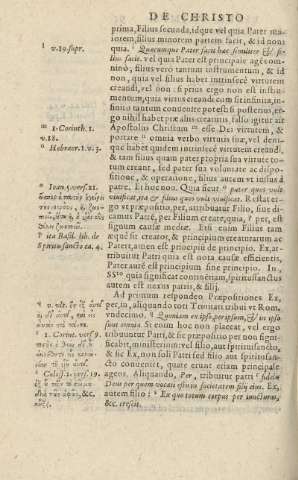 DE CHRISTO
prima, Filius secunda, idque vel quia Pater ma-
iorem, filius minorem partem facit, & id non:
quia. Quæcunque Pater facit hæc similiter & fi-
lius facit. vel quia Pater est principale agēs om-
ninò, filius verò tantum instrumentum, & id
non, quia vel filius habet intrinsecè virtutem
creandi, vel non: si prius ergo non est instru-
mentum, quia virtus creandi cum sit infinita, in-
finito tantum convenire potest: si posterius, er-
go nihil habet præ aliis creaturis, falsò igitur ait
Apostolus Christum esse Dei virtutem, &
portare omnia verbo virtutis suæ, vel deni-
que habet quidem intrinsecè virtutem creandi,
& tam filius quam pater propria sua virtute to-
tum creant, sed pater sua voluntate ac dispo-
sitione, & operatione, filius autem ut iussus à
patre. Et hoc non. Quia sicut pater quos vult
vivificat, ita & filius quos vult vivificat. Restat er-
go ut præpositio per, attribuatur Filio, sive di-
camus Patrē, per Filium creare, quia, per, est
signum causæ mediæ. Etsi enim Filius tam
quam sit creator, & principium creaturarum ac
Pater, tamen est principiū de principio. Ex, at-
tribuitur Patri quia est nota causæ efficientis,
Pater autē est principium sine principio. In,
SSto quia significat connexionem, spiritus sanctus
autem est nexus patris, & filij.
Ad primum respondeo Præpositiones Ex,
per, in, aliquando toti Trinitati tribui vt Rom.
vndecimo. Quoniam ex ipso, per ipsum, & in ipso
sunt omnia. Si cum hoc non placeat, vel ergo
tribuuntur Patri, & sic præpositio per non signi-
ficabit, ministerium: vel filio, aut spiritui sancto,
& sic Ex, non soli Patri sed filio aut spiritui san-
cto conveniet, quare erunt etiam principale
agens. Aliquando, Per, tribuitur patri fidelis
Deus per quem vocati estis in societatem filij eius. Ex,
autem filio: Ex quo totum corpus per iuncturas,
&c. crescit.
l v.19. supr.
m 1. Corinth. 1.
v.18.
n Hebræor. 1. v.3.
o Ioan 5. vers. 21.
p ita Basil. lib. de
Spiritu sancto ca. 4.
r 1. Corint. vers. 9.
s Coloss. 2. vers. 19.